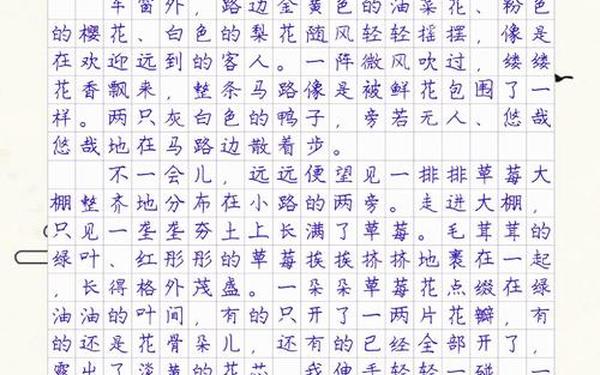 车窗外，路边金黄色的油菜花、粉色
的樱花、白色的梨花随风轻轻摇摆，像是
在欢迎远到的客人。一阵微风吹过，缕缕
花香飘来，整条马路像是被鲜花包围了一
样。两只灰白色的鸭子，旁若无人、悠哉
悠哉地在马路边散着步。
不一会儿，远远便望见一排排草莓大
棚整齐地分布在小路的两旁。走进大棚，
只见一垄垄夯土上长满了草莓。毛茸茸的
绿叶、红彤彤的草莓挨挨挤挤地裹在一起
，长得格外茂盛。一朵朵草莓花点缀在绿
油油的叶间，有的只开了一两片花瓣，有
的还是花骨朵儿，还有的已经全部开了，
露出了淡黄的花芯。我伸手轻轻一碰，一